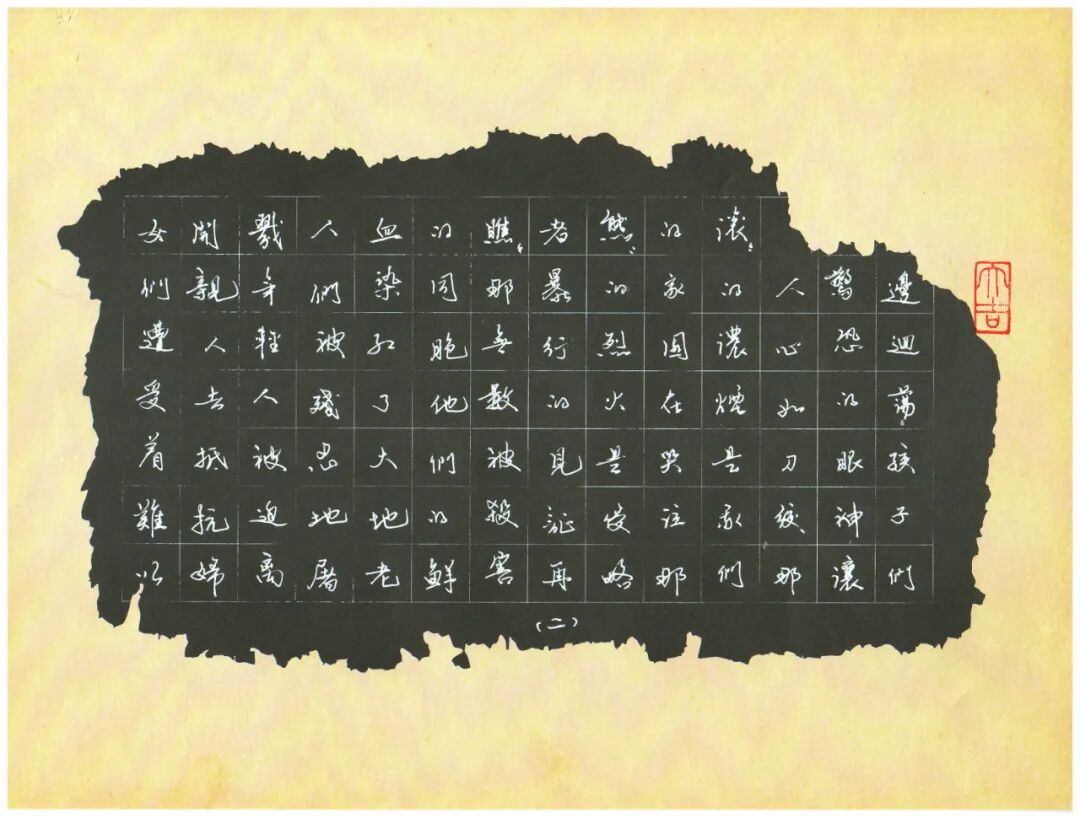 邊迴蕩，孩子們
驚恐的眼神讓
人心如刀絞那
滚々的濃煙是我們
的家園在哭泣那
熊々的烈火是侵略
者暴行的見証再
瞧々那無數被殺害
的同胞他們的鮮
血染紅了大地老
人們被殘忍地屠
戮年輕人被迫离
開親人去抵抗婦
女們遭受着難以
（二）
大吉